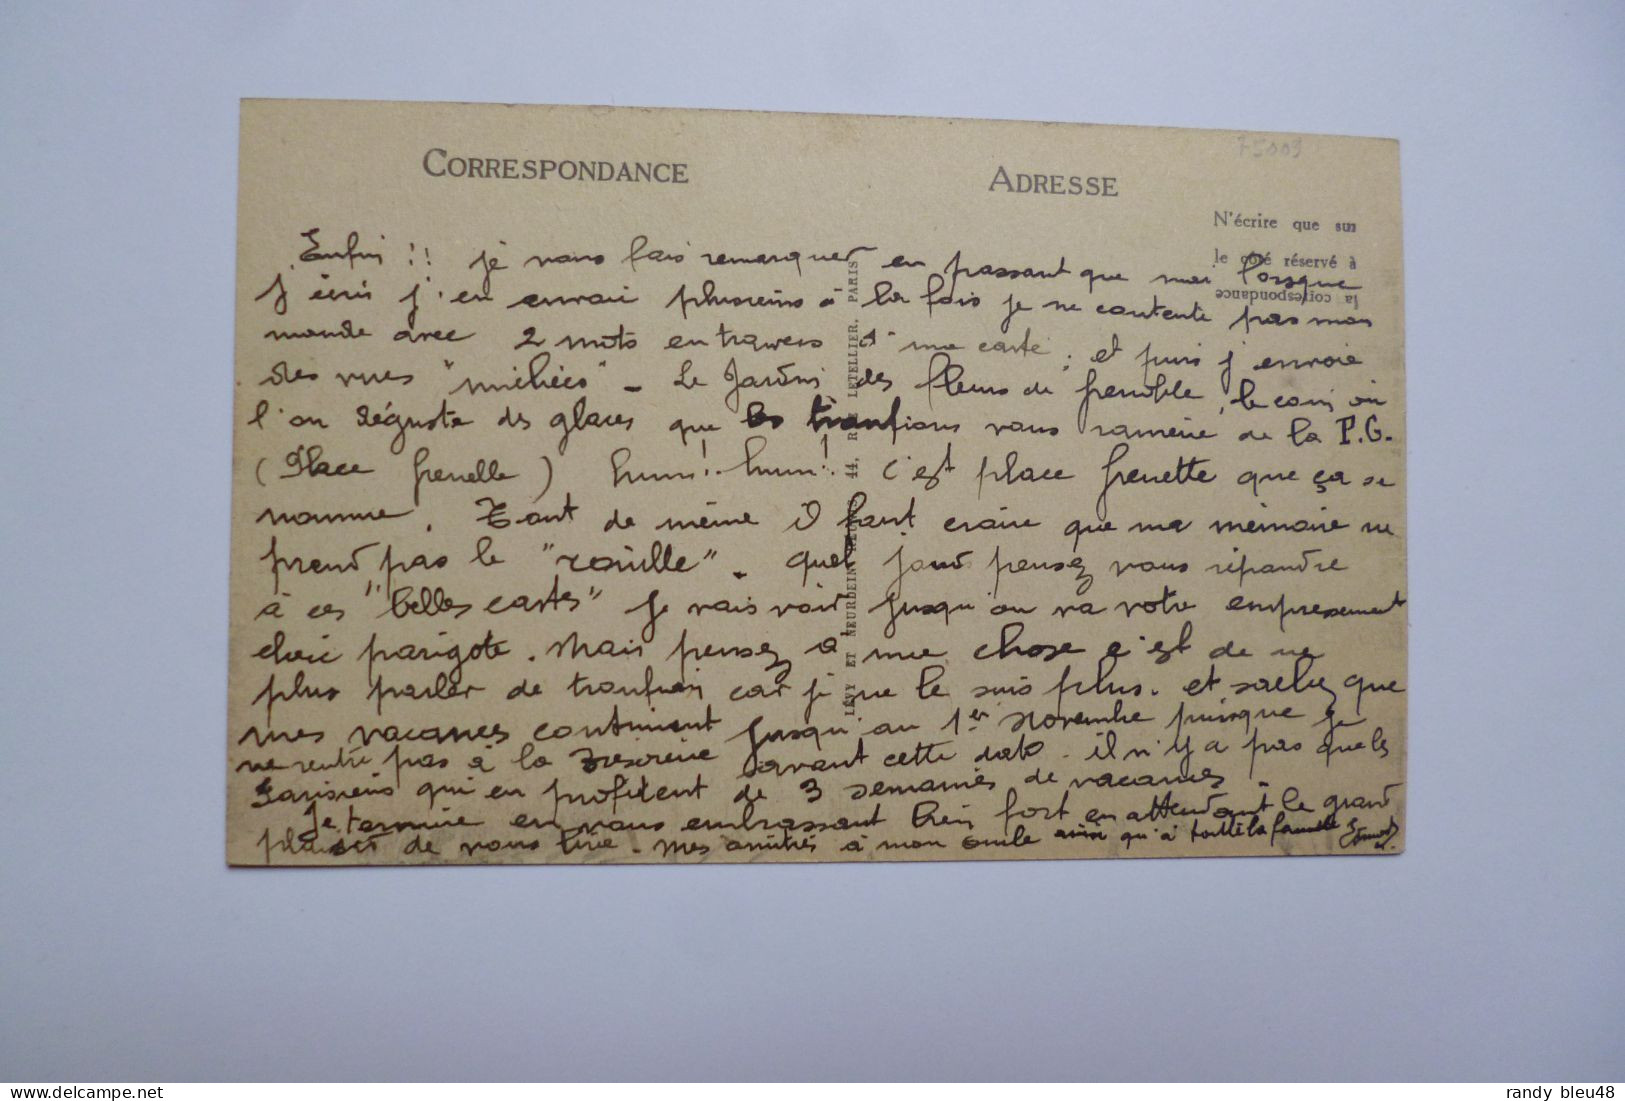 75009
CORRESPONDANCE
ADRESSE
N'écrire que sur
le côté réservé à
la correspondance
Enfin !! je vous fais remarquer en passant que moi lorsque
j'écris j'en envoie plusieurs à la fois je ne contente pas mon
monde avec 2 mots en travers d'une carte ; et puis j'envoie
des vues "michées" - Le Jardin des fleurs de Grenoble, le coin où
l'on déguste des glaces que les vous ramène de la P.G.
(Place Grenelle) hum! hum! C'est place Grenette que ça se
nomme. Tout de même il faut croire que ma mémoire ne
prend pas le "rouille". Quel jour pensez vous répondre
à ces "belles cartes" je vais voir jusqu'ou va votre empressement
chère parigote. Mais pensez à une chose c'est de ne
plus parler de car je ne le suis plus. et sachez que
mes vacances continuent jusqu'au 1er Novembre puisque je
ne rentre pas à la avant cette date. il n'y a pas que les
Parisiens qui en profitent de 3 semaines de vacances.
Je termine en vous embrassant bien fort en attendant le grand
plaisir de vous lire. Mes amitiés à mon oncle ainsi qu'à toute la famille
LÉVY ET NEURDEIN RÉUNIS, 44, RUE LETELLIER, PARIS
Delcampe.net
randy bleu48